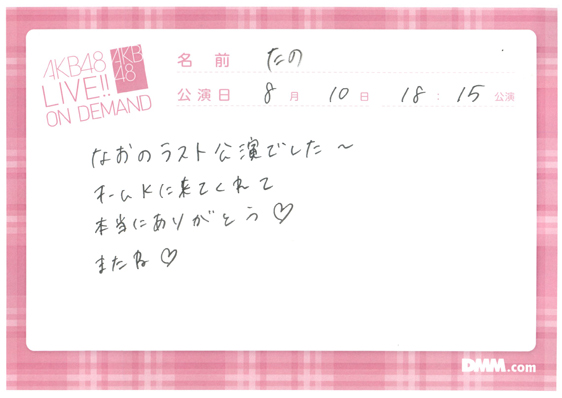 AKB48
LIVE!!
ON DEMAND
AKB
48
名 前 たの
公演日 8 月 10 日 18 : 15 公演
なおのラスト公演でした〜
ホームKに来てくれて
本当にありがとう♡
またね♡
DMM.com